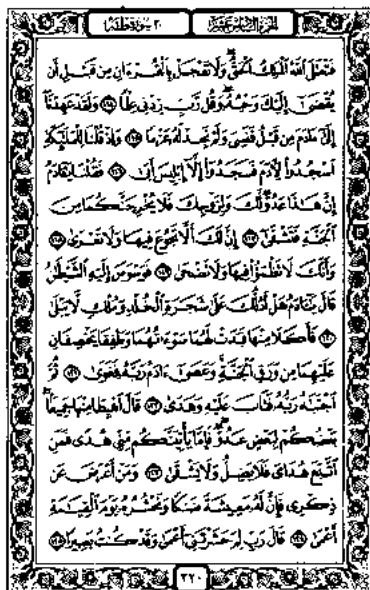 ٢٠ سورة طه
الجزء السادس عشر
فَتَعَٰلَى ٱللَّهُ ٱلْمَلِكُ ٱلْحَقُّ وَلَا تَعْجَلْ بِٱلْقُرْءَانِ مِن قَبْلِ أَن
يُقْضَىٰٓ إِلَيْكَ وَحْيُهُۥ وَقُل رَّبِّ زِدْنِى عِلْمًا ١١٤ وَلَقَدْ عَهِدْنَآ
إِلَىٰٓ ءَادَمَ مِن قَبْلُ فَنَسِىَ وَلَمْ نَجِدْ لَهُۥ عَزْمًا ١١٥ وَإِذْ قُلْنَا لِلْمَلَٰٓئِكَةِ
ٱسْجُدُوا۟ لِءَادَمَ فَسَجَدُوٓا۟ إِلَّآ إِبْلِيسَ أَبَىٰ ١١٦ فَقُلْنَا يَٰٓـَٔادَمُ
إِنَّ هَٰذَا عَدُوٌّ لَّكَ وَلِزَوْجِكَ فَلَا يُخْرِجَنَّكُمَا مِنَ
ٱلْجَنَّةِ فَتَشْقَىٰٓ ١١٧ إِنَّ لَكَ أَلَّا تَجُوعَ فِيهَا وَلَا تَعْرَىٰ ١١٨
وَأَنَّكَ لَا تَظْمَؤُا۟ فِيهَا وَلَا تَضْحَىٰ ١١٩ فَوَسْوَسَ إِلَيْهِ ٱلشَّيْطَٰنُ
قَالَ يَٰٓـَٔادَمُ هَلْ أَدُلُّكَ عَلَىٰ شَجَرَةِ ٱلْخُلْدِ وَمُلْكٍ لَّا يَبْلَىٰ
١٢٠ فَأَكَلَا مِنْهَا فَبَدَتْ لَهُمَا سَوْءَٰتُهُمَا وَطَفِقَا يَخْصِفَانِ
عَلَيْهِمَا مِن وَرَقِ ٱلْجَنَّةِ وَعَصَىٰٓ ءَادَمُ رَبَّهُۥ فَغَوَىٰ ١٢١ ثُمَّ
ٱجْتَبَٰهُ رَبُّهُۥ فَتَابَ عَلَيْهِ وَهَدَىٰ ١٢٢ قَالَ ٱهْبِطَا مِنْهَا جَمِيعًۢا
بَعْضُكُمْ لِبَعْضٍ عَدُوٌّ فَإِمَّا يَأْتِيَنَّكُم مِّنِّى هُدًى فَمَنِ
ٱتَّبَعَ هُدَاىَ فَلَا يَضِلُّ وَلَا يَشْقَىٰ ١٢٣ وَمَنْ أَعْرَضَ عَن
ذِكْرِى فَإِنَّ لَهُۥ مَعِيشَةً ضَنكًا وَنَحْشُرُهُۥ يَوْمَ ٱلْقِيَٰمَةِ
أَعْمَىٰ ١٢٤ قَالَ رَبِّ لِمَ حَشَرْتَنِىٓ أَعْمَىٰ وَقَدْ كُنتُ بَصِيرًا ١٢٥
٣٢٠